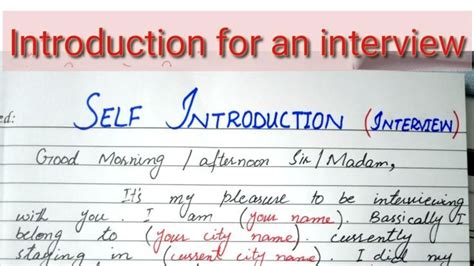 Introduction for an interview
ed:
SELF INTRODUCTION (INTERVIEW)
Good Morning / afternoon Sir / Madam,
It's my pleasure to be interviewing
with you. I am (your name). Bassically I
belong to (your city name). currently
staying in (current city name). I did my